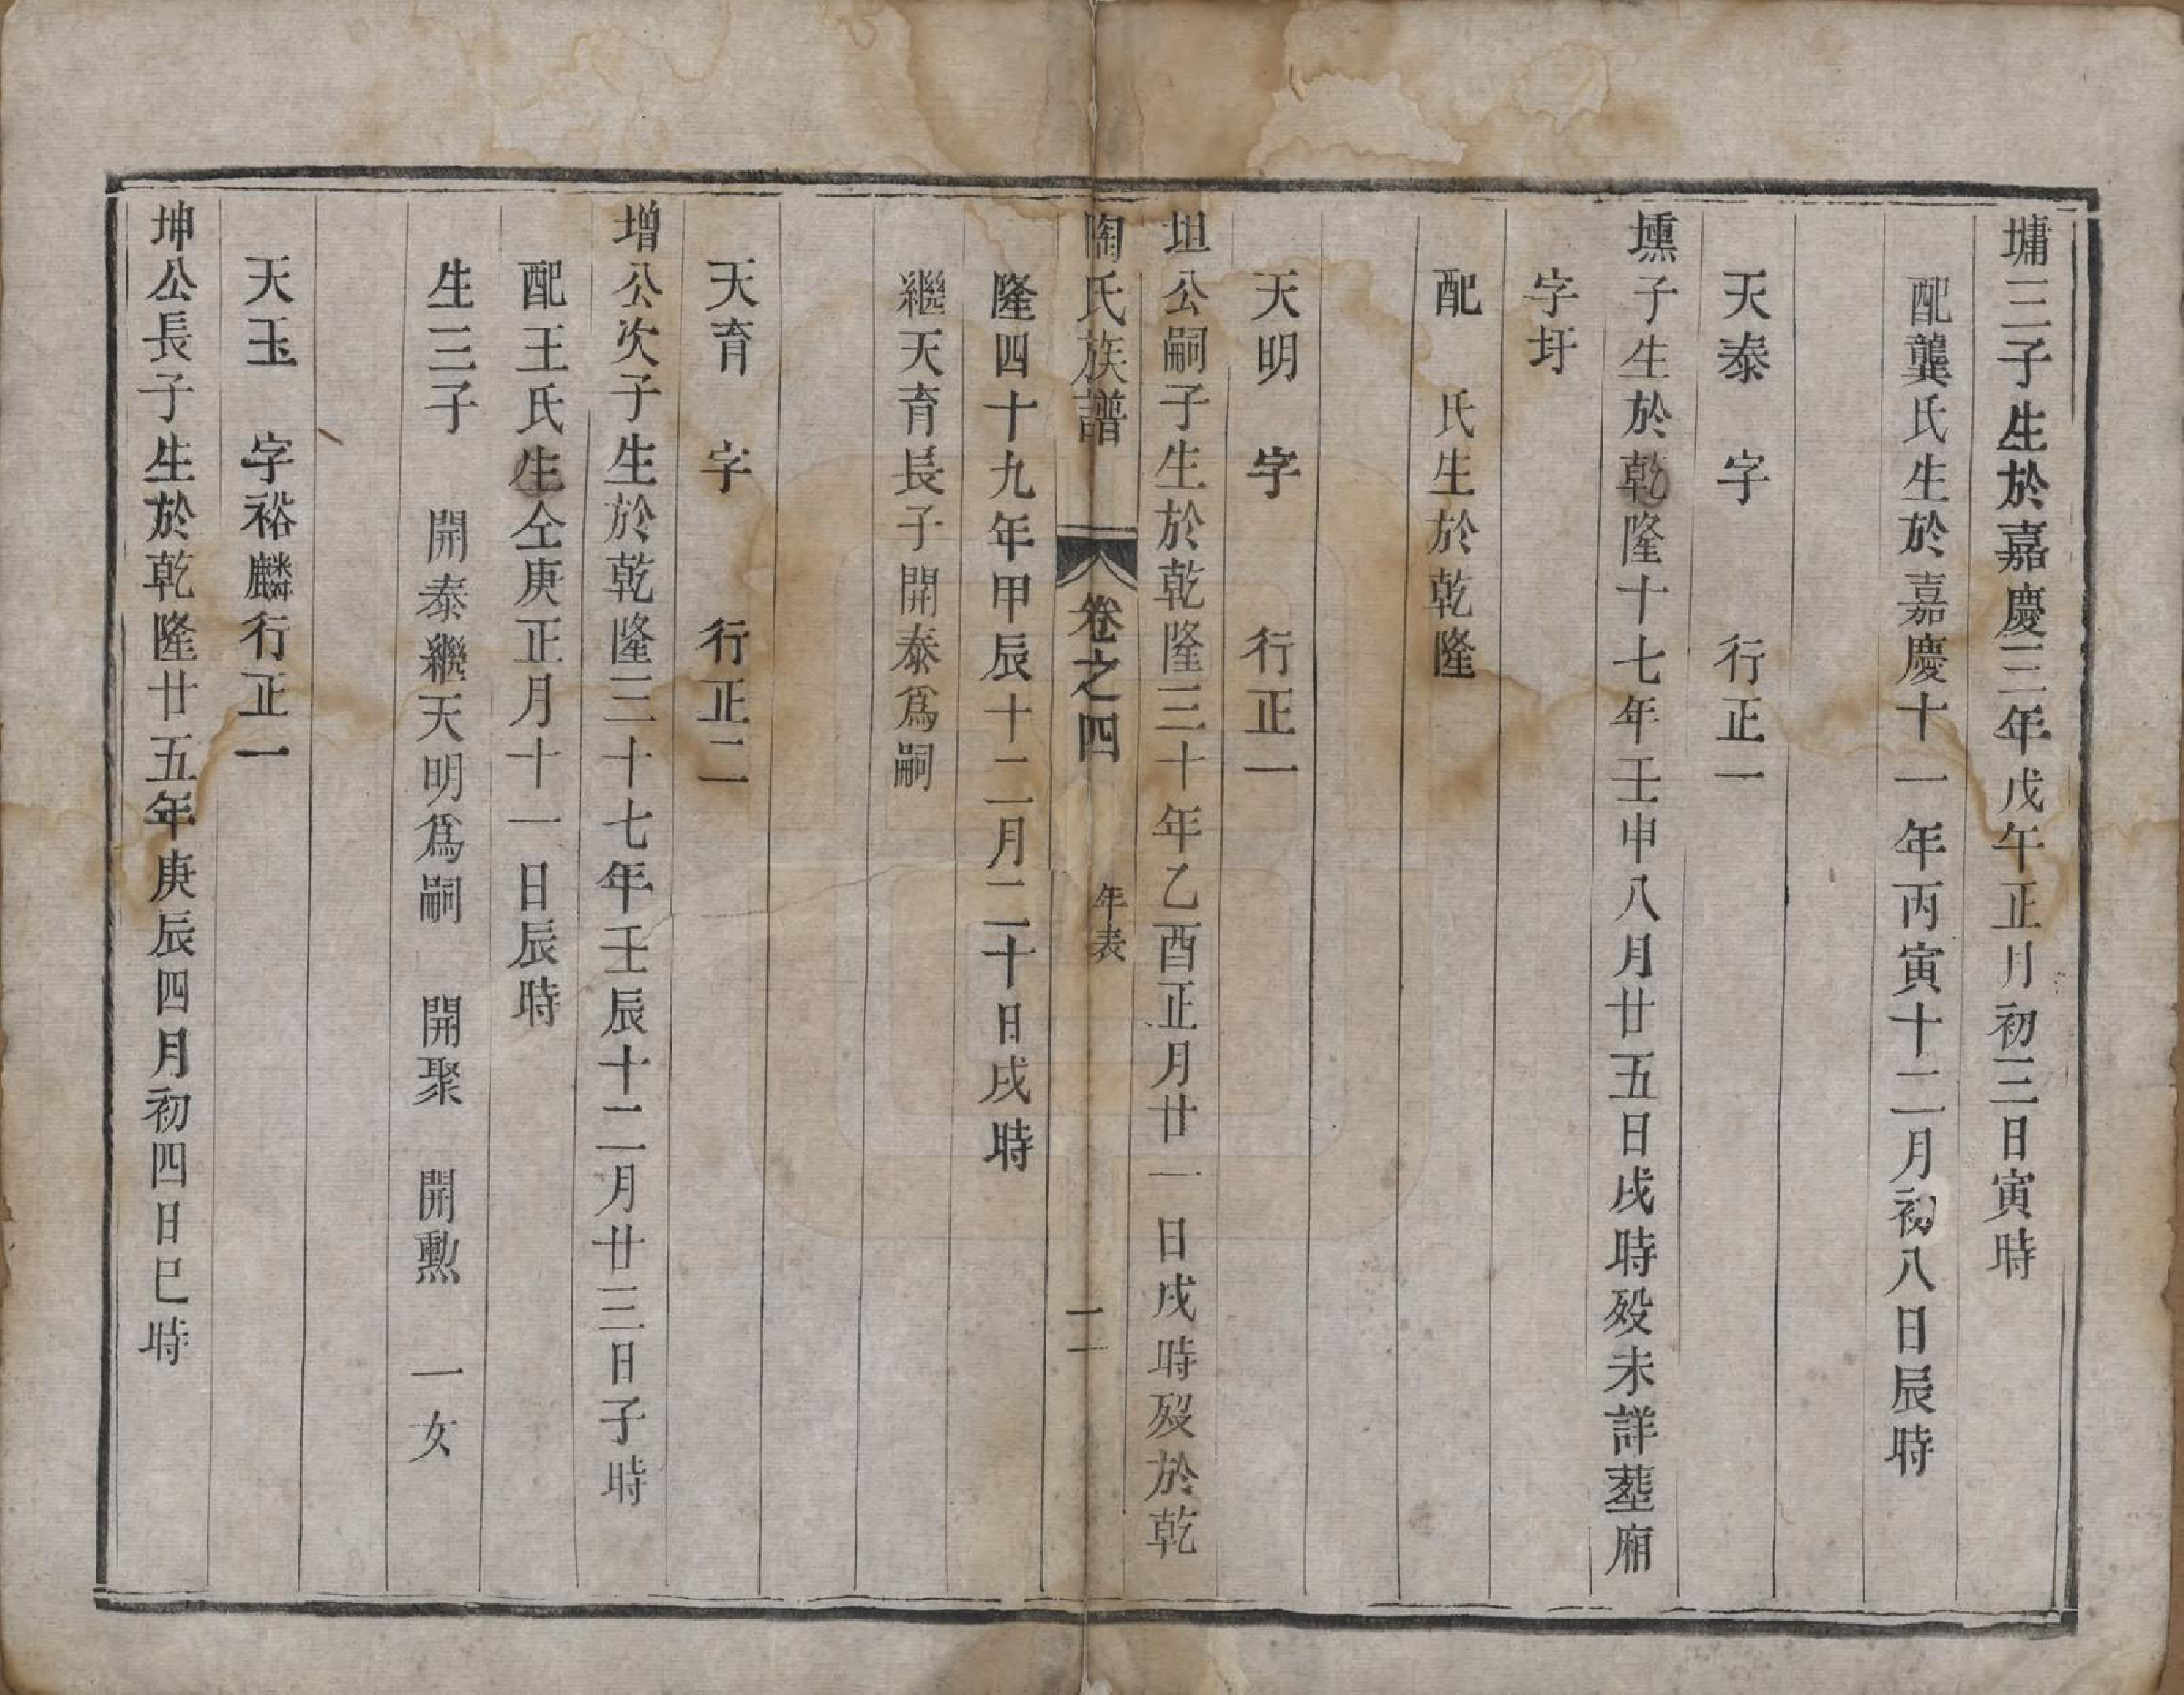 墉三子生於嘉慶三年戊午正月初三日寅時
配龔氏生於嘉慶十一年丙寅十二月初八日辰時
天泰 字 行正一
壎子生於乾隆十七年壬申八月廿五日戌時殁未詳塟廂
字圩
配 氏生於乾隆
天明 字 行正一
坦公嗣子生於乾隆三十年乙酉正月廿一日戌時殁於乾
陶氏族譜 卷之四 年表 二
隆四十九年甲辰十二月二十日戌時
繼天育長子開泰爲嗣
天育 字 行正二
增公次子生於乾隆三十七年壬辰十二月廿三日子時
配王氏生仝庚正月十一日辰時
生三子 開泰繼天明爲嗣 開聚 開勲 一女
天玉 字裕麟行正一
坤公長子生於乾隆廿五年庚辰四月初四日巳時